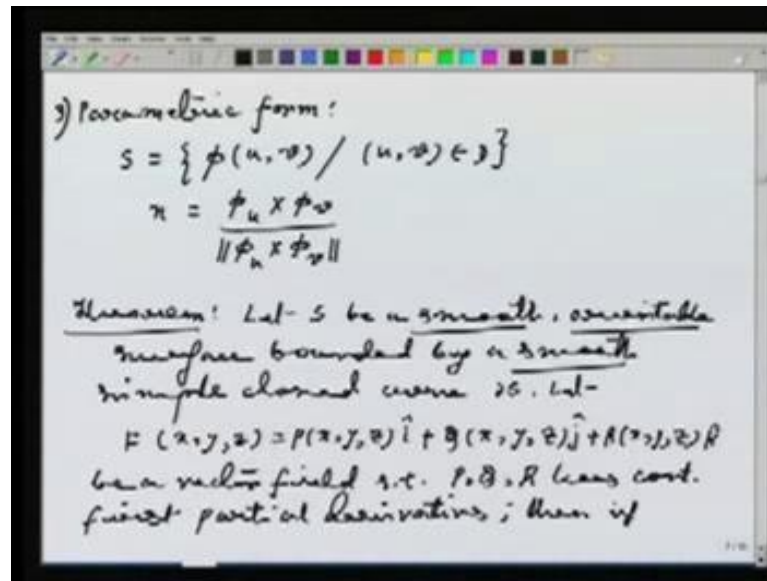 3) Parametric form:
S = { φ(u, v) / (u, v) ∈ D }
n = φ_u × φ_v / ‖φ_u × φ_v‖
Theorem: Let S be a smooth, orientable
surface bounded by a smooth
simple closed curve ∂S. Let
F(x,y,z) = P(x,y,z) î + Q(x,y,z) ĵ + R(x,y,z) k
be a vector field s.t. P, Q, R have cont.
first partial derivatives; then if